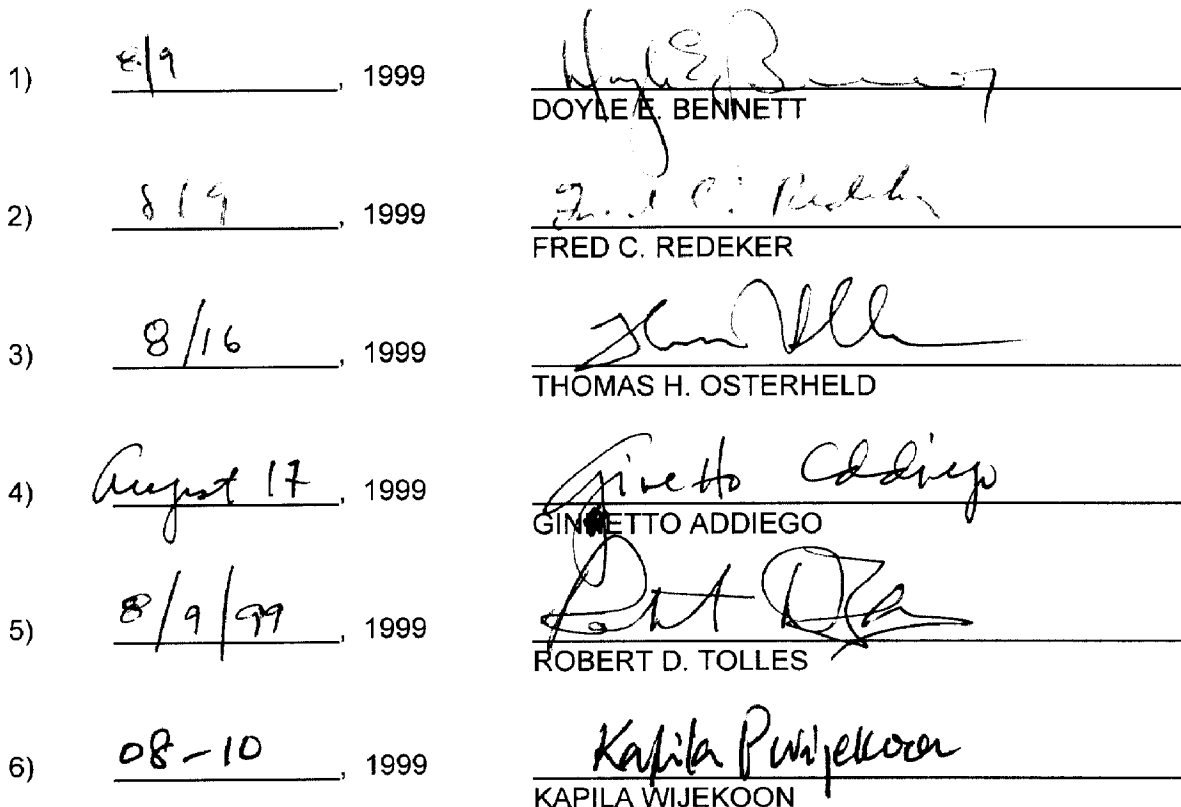 1) 8/9, 1999 Doyle E. Bennett
DOYLE E. BENNETT
2) 8/9, 1999 Fred C. Redeker
FRED C. REDEKER
3) 8/16, 1999
THOMAS H. OSTERHELD
4) August 17, 1999 Ginetto Addiego
GINNETTO ADDIEGO
5) 8/9/99, 1999 Robert D. Tolles
ROBERT D. TOLLES
6) 08-10, 1999 Kapila P Wijekoon
KAPILA WIJEKOON